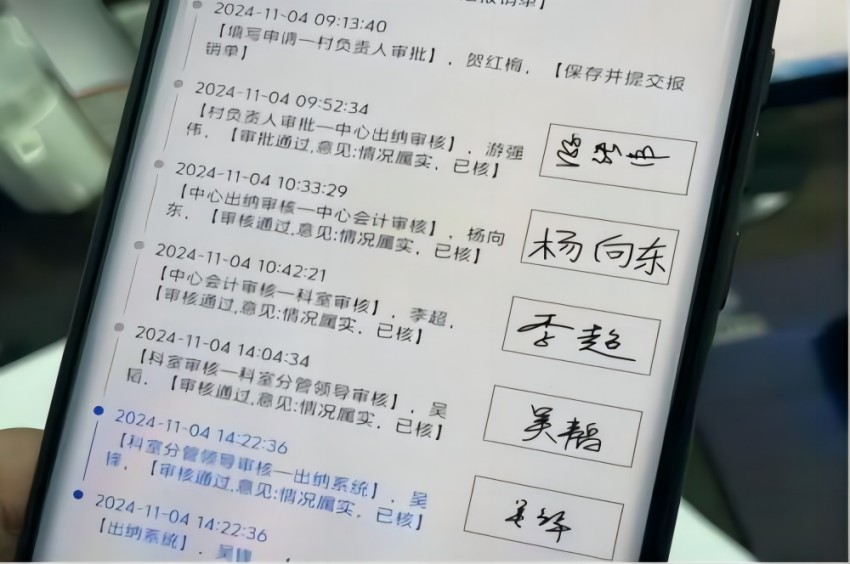 报销单】
2024-11-04 09:13:40
【填写申请—村负责人审批】，贺红梅，【保存并提交报
销单】
2024-11-04 09:52:34
【村负责人审批—中心出纳审核】，游强
伟，【审批通过,意见:情况属实，已核】
2024-11-04 10:33:29
【中心出纳审核—中心会计审核】，杨向
东，【审核通过,意见:情况属实，已核】
杨向东
2024-11-04 10:42:21
【中心会计审核—科室审核】，李超，
【审核通过,意见:情况属实，已核】
李超
2024-11-04 14:04:34
【科室审核—科室分管领导审核】，吴
韬，【审核通过,意见:情况属实，已核】
吴韬
2024-11-04 14:22:36
【科室分管领导审核—出纳系统】，吴
锋，【审核通过,意见:情况属实，已核】
吴锋
2024-11-04 14:22:36
【出纳系统】，吴锋，